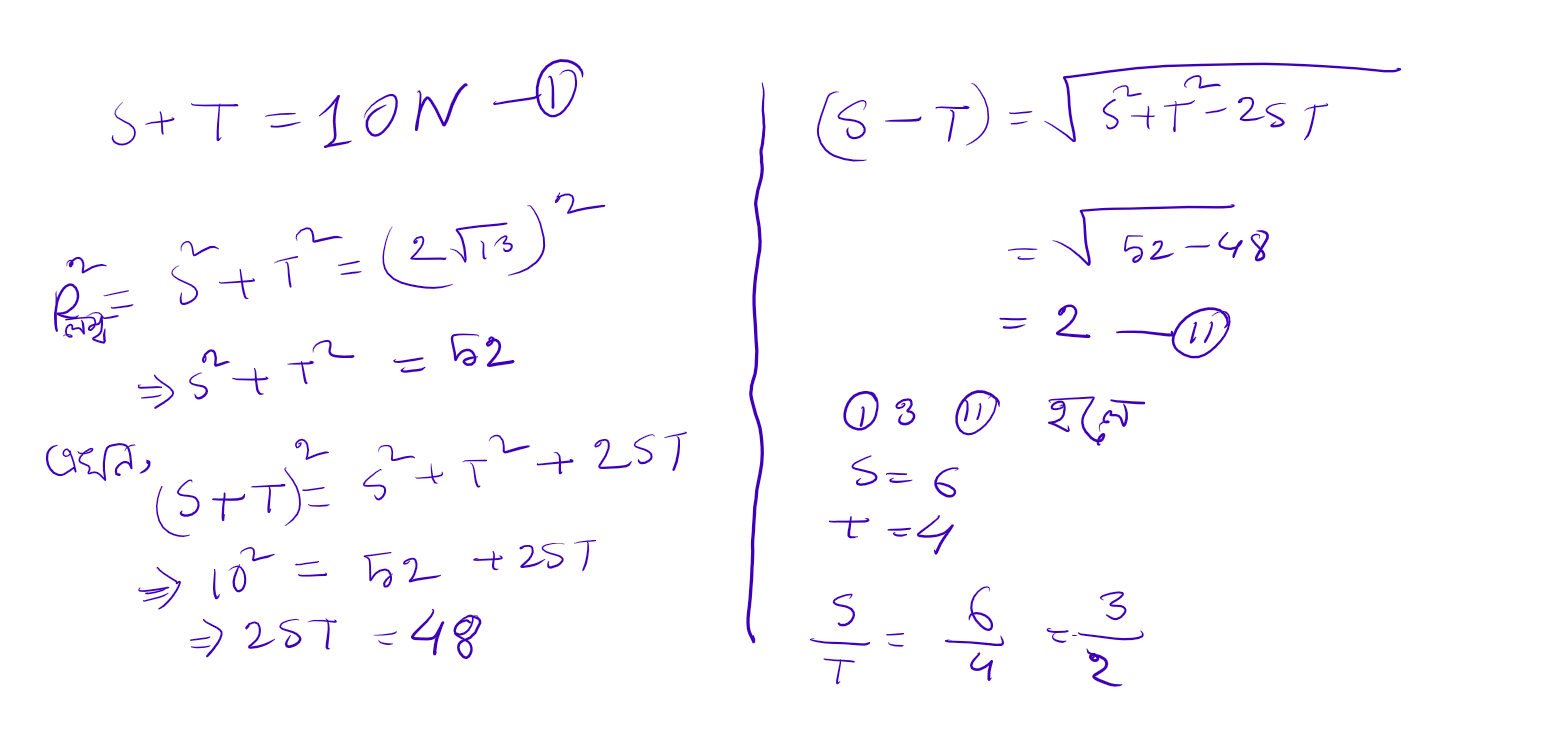 S+T = 10N —①
R²লম্ব = S² + T² = (2√13)²
⇒ S² + T² = 52
এখন, (S+T)² = S² + T² + 2ST
⇒ 10² = 52 + 2ST
⇒ 2ST = 48
(S – T) = √S²+T²-2ST
= √52-48
= 2 —⑪
① ও ⑪ হলে
S = 6
t = 4
S/T = 6/4 = 3/2